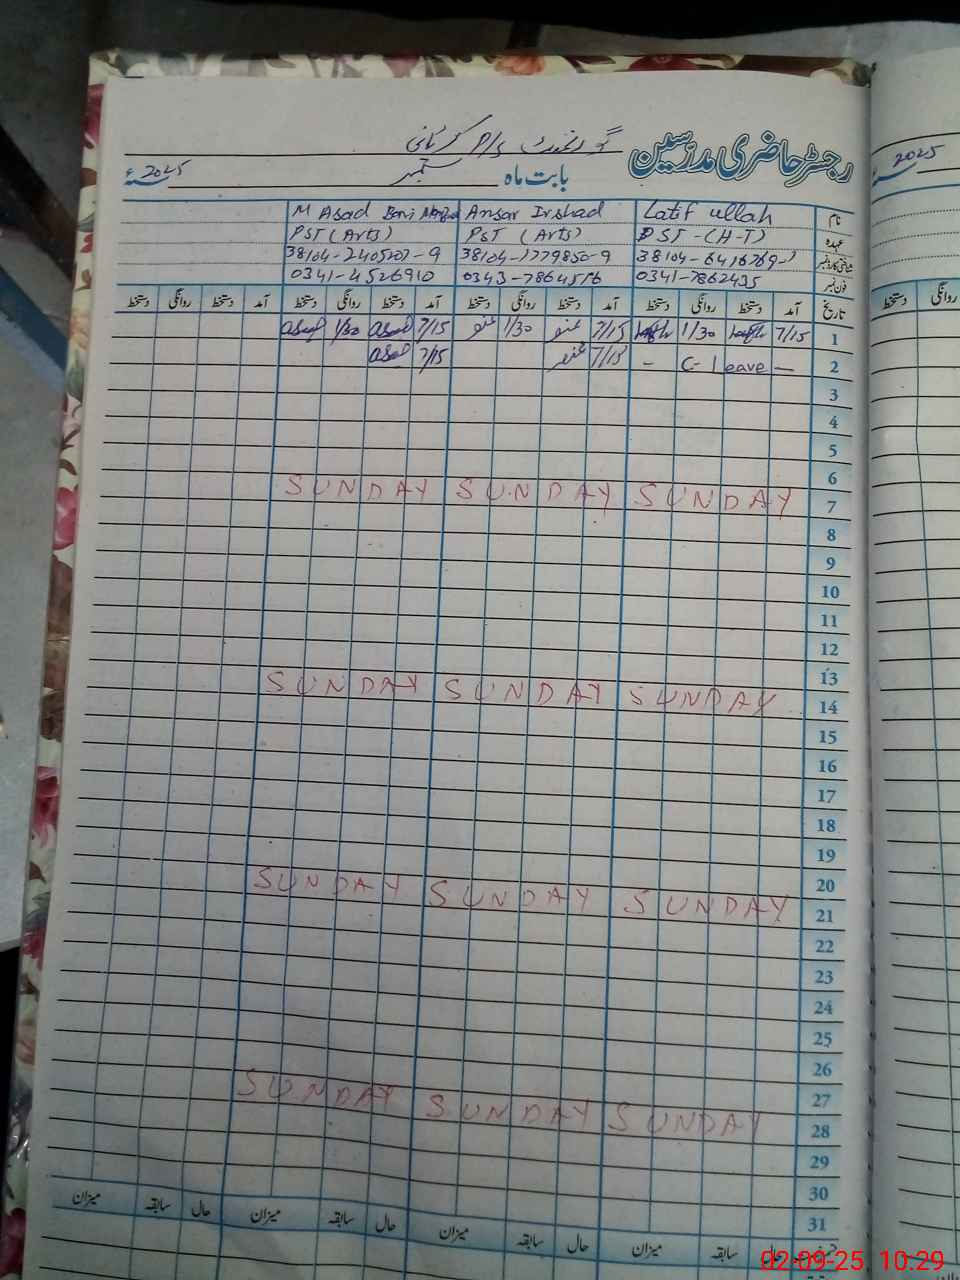 رجسٹر حاضری مدرسین
گورنمنٹ P/S
بابت ماہ ستمبر 2025ء
نام Latif ullah Ansar Irshad M Asad
عہدہ PST-(H-T) PST (Arts) PST (Arts)
شناختی کارڈ نمبر 38104-6416769-1 38104-1779850-9 38104-2405207-9
فون نمبر 0341-7862435 0343-7864516 0341-4526910
تاریخ آمد دستخط روانگی دستخط آمد دستخط روانگی دستخط آمد دستخط روانگی دستخط آمد دستخط روانگی دستخط
1 7/15 1/30 7/15 1/30 7/15 Asad 1/30 Asad
2 — C-leave — 7/15 7/15 Asad
3
4
5
6
7 SUNDAY SUNDAY SUNDAY
8
9
10
11
12
13
14 SUNDAY SUNDAY SUNDAY
15
16
17
18
19
20
21 SUNDAY SUNDAY SUNDAY
22
23
24
25
26
27
28 SUNDAY SUNDAY SUNDAY
29
30
31
حال سابقہ میزان حال سابقہ میزان حال سابقہ میزان حال سابقہ میزان
2025
روانگی دستخط
02-09-25 10:29